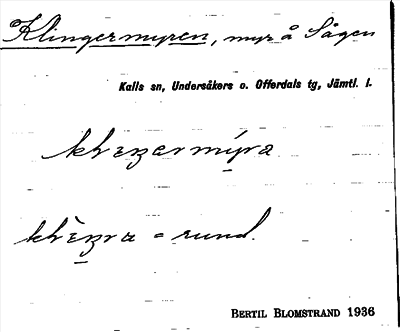 Klingermyren, myr å Sågen
Kalls sn, Undersåkers o. Offerdals tg, Jämtl. l.
klɩŋermýra
klɩ̀ŋra = rund.
BERTIL BLOMSTRAND 1936